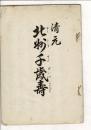 清元
北州千歳壽